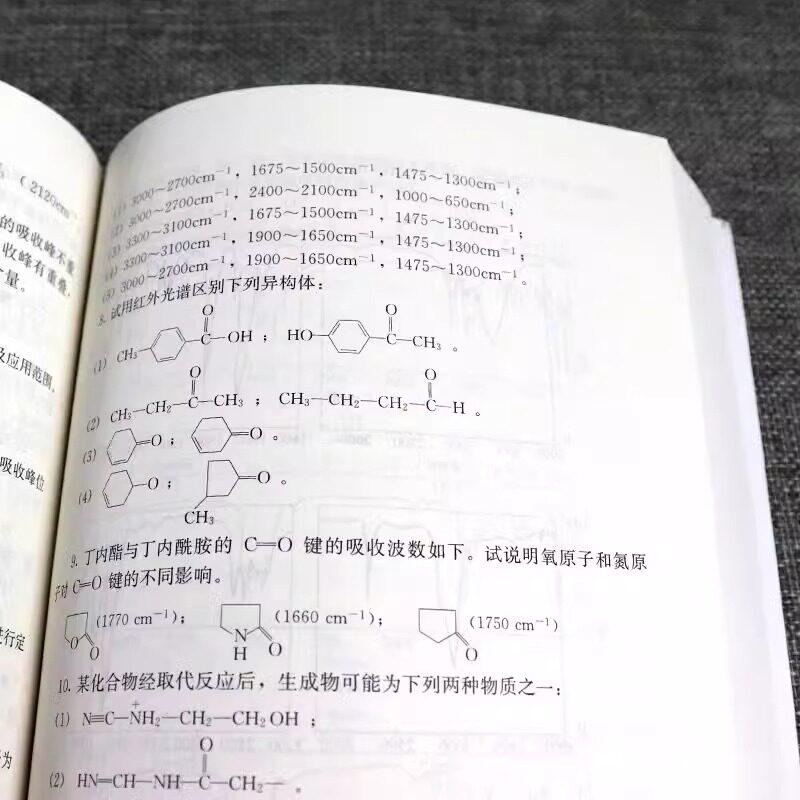 （2120cm⁻¹
的吸收峰不重
收峰有重叠，
量。
及应用范围。
吸收峰位
进行定
为
(1) 3000～2700cm⁻¹，1675～1500cm⁻¹，1475～1300cm⁻¹；
(2) 3000～2700cm⁻¹，2400～2100cm⁻¹，1000～650cm⁻¹；
(3) 3300～3100cm⁻¹，1675～1500cm⁻¹，1475～1300cm⁻¹；
(4) 3300～3100cm⁻¹，1900～1650cm⁻¹，1475～1300cm⁻¹；
(5) 3000～2700cm⁻¹，1900～1650cm⁻¹，1475～1300cm⁻¹。
8. 试用红外光谱区别下列异构体：
O O
(1) CH₃ C—OH ； HO C—CH₃ 。
O O
(2) CH₃—CH₂—C—CH₃ ； CH₃—CH₂—CH₂—C—H 。
(3) =O ； =O 。
(4) —O ； =O 。
CH₃
9. 丁内酯与丁内酰胺的 C=O 键的吸收波数如下。试说明氧原子和氮原
子对 C=O 键的不同影响。
(1770 cm⁻¹)； (1660 cm⁻¹)； (1750 cm⁻¹)
O O N H O O
10. 某化合物经取代反应后，生成物可能为下列两种物质之一：
(1) N≡C—N⁺H₂—CH₂—CH₂OH ；
O
(2) HN=CH—NH—C—CH₂— 。